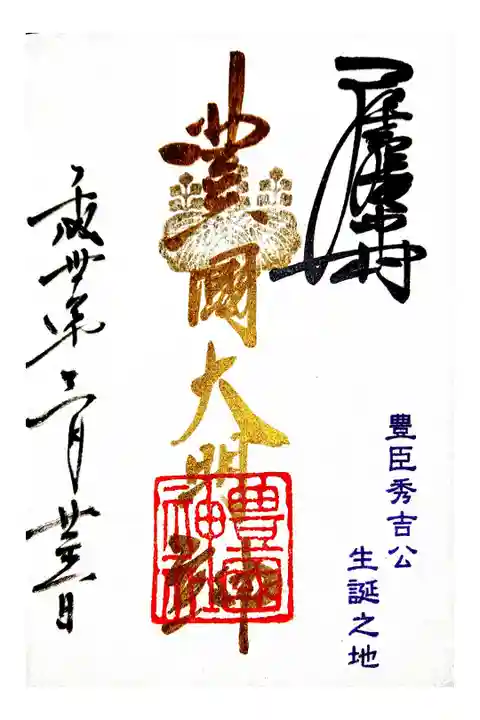 豊臣秀吉公
生誕之地
豊國大明神
豊國神社
平成卅年二月廿三日